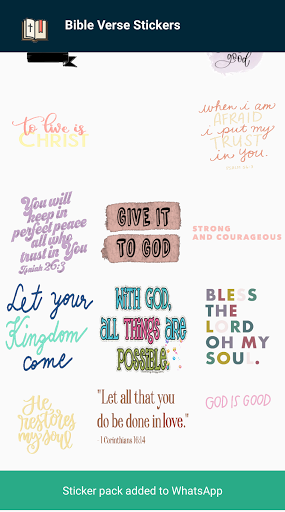 Bible Verse Stickers
good
to live is
CHRIST
when i am
AFRAID
i put my
TRUST
in You.
You will
keep in
perfect peace
all who
trust in You
Isaiah 26:3
GIVE IT
TO GOD
STRONG
AND COURAGEOUS
Let your
Kingdom
come
WITH GOD,
ALL THINGS ARE
POSSIBLE.
BLESS
THE
LORD
OH MY
SOUL.
He
restores
my soul
"Let all that you
do be done in love."
-1 Corinthians 16:14
GOD IS GOOD
Sticker pack added to WhatsApp